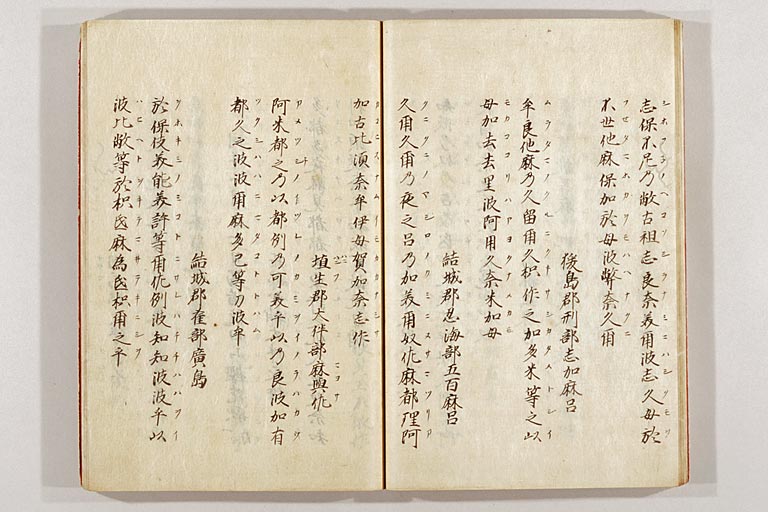 志保不尼乃敝古祖志良奈美爾波志久母於
不世他麻保加於母波弊奈久爾
猨島郡刑部志加麻呂
牟良他麻乃久留爾久枳作之加多米等之以
母加去去里波阿用久奈米加母
結城郡忍海部五百麻呂
久爾久爾乃夜之呂乃加美爾奴佐麻都理阿
加古比須奈牟伊母賀加奈志作
埴生郡大伴部麻與佐
阿米都之乃以都例乃可美乎以乃良波加有
都久之波波爾麻多己等刀波牟
結城郡雀部廣島
於保伎美能美許等爾作例波知知波波乎以
波比敝等於枳弖麻為弖枳爾之乎